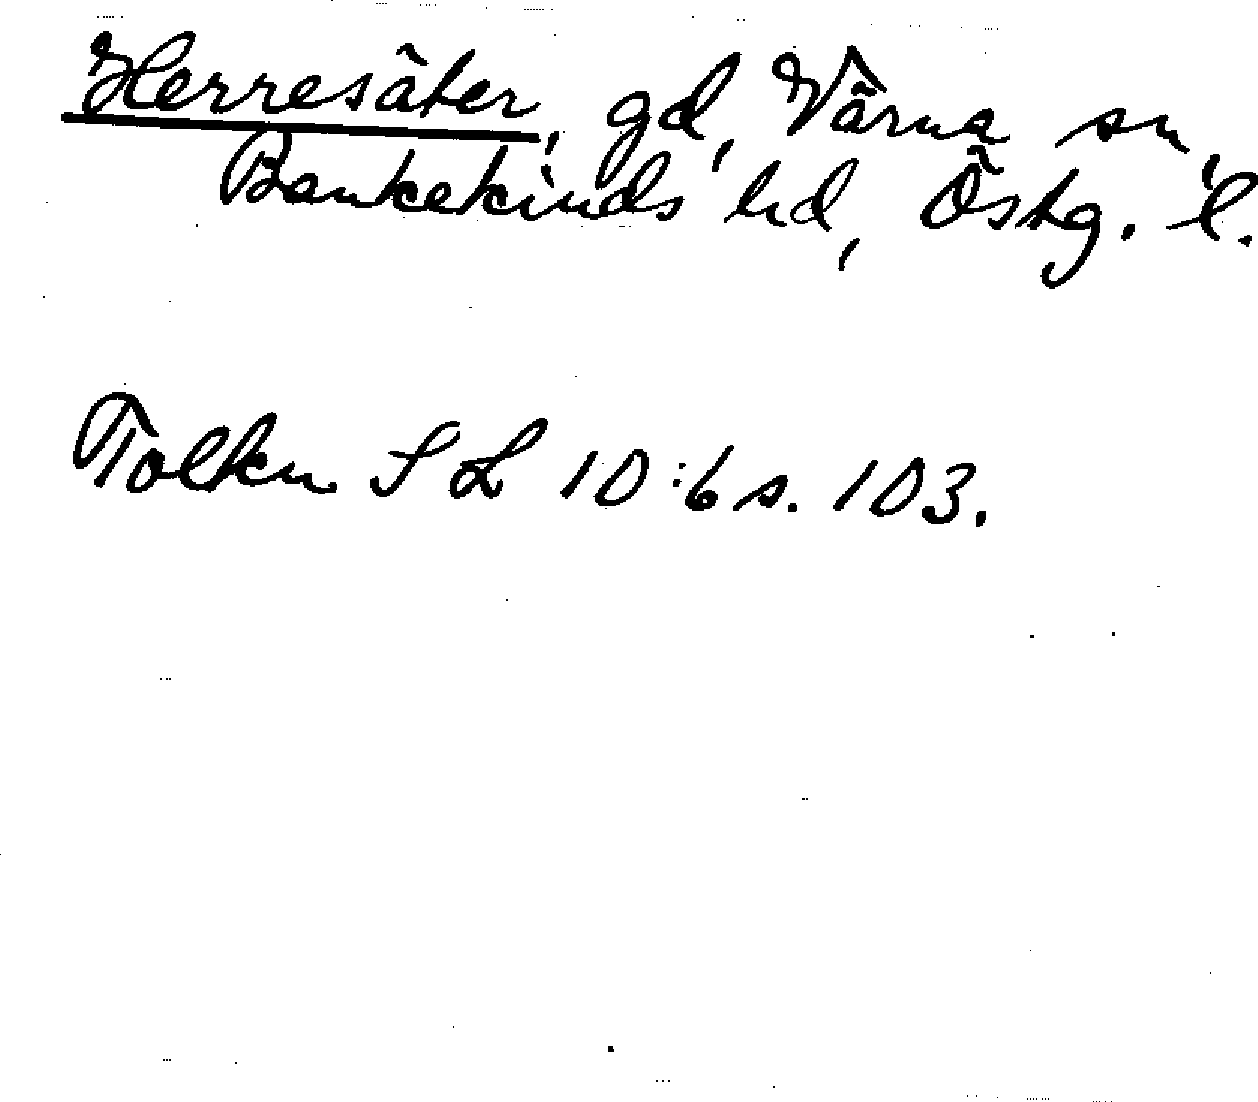 Herresäter, gd, Värna sn,
Bankekinds hd, Östg. l.
Tolken SL 10:6 s. 103.